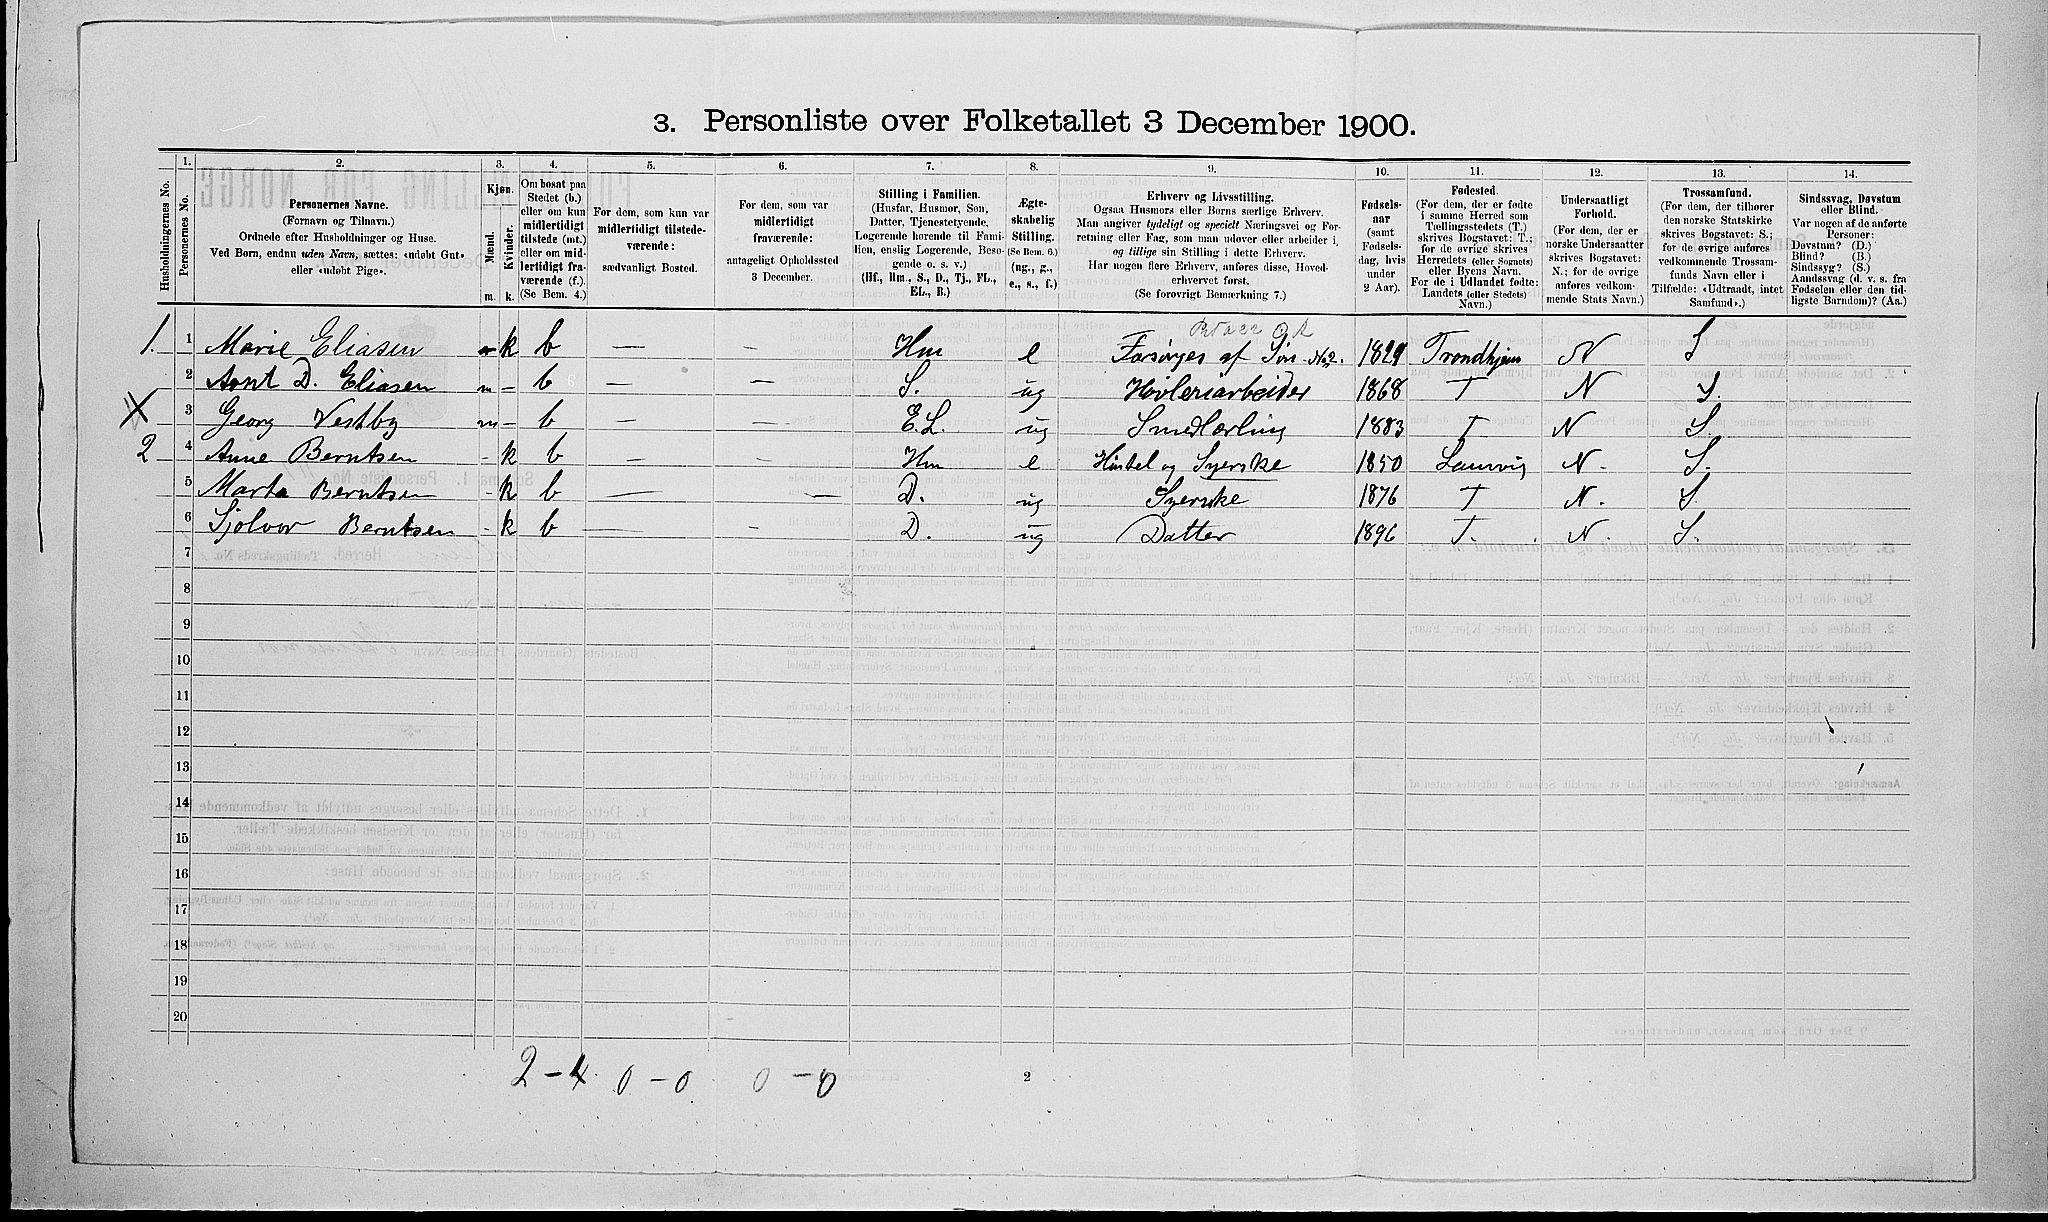 3. Personliste over Folketallet 3 December 1900.
Husholdningernes No.
1.
Personernes No.
2.
Personernes Navne.
(Fornavn og Tilnavn.)
Ordnede efter Husholdninger og Huse.
Ved Børn, endnu uden Navn, sættes: «udøbt Gut»
eller «udøbt Pige».
3.
Kjøn.
Mænd.
Kvinder.
m. k.
4.
Om bosat paa
Stedet (b.)
eller om kun
midlertidigt
tilstede (mt.)
eller om mid-
lertidigt fra-
værende (f.).
(Se Bem. 4.)
5.
For dem, som kun var
midlertidigt tilstede-
værende:
sædvanligt Bosted.
6.
For dem, som var
midlertidigt
fraværende:
antageligt Opholdssted
3 December.
7.
Stilling i Familien.
(Husfar, Husmor, Søn,
Datter, Tjenestetyende,
Logerende hørende til Fami-
lien, enslig Logerende, Besø-
gende o. s. v.)
(Hf., Hm., S., D., Tj., FL.,
EL., B.)
8.
Ægte-
skabelig
Stilling.
(Se Bem. 6.)
(ug., g.,
e., s., f.)
9.
Erhverv og Livsstilling.
Ogsaa Husmors eller Børns særlige Erhverv.
Man angiver tydeligt og specielt Næringsvei og For-
retning eller Fag, som man udøver eller arbeider i,
og tillige sin Stilling i dette Erhverv.
Har nogen flere Erhverv, anføres disse, Hoved-
erhvervet først.
(Se forøvrigt Bemærkning 7.)
10.
Fødsels-
aar
(samt
Fødsels-
dag, hvis
under
2 Aar).
11.
Fødested.
(For dem, der er fødte
i samme Herred som
Tællingsstedets (T.)
skrives Bogstavet: T.;
for de øvrige skrives
Herredets (eller Sognets)
eller Byens Navn.
For de i Udlandet fødte:
Landets (eller Stedets)
Navn.)
12.
Undersaatligt
Forhold.
(For dem, der er
norske Undersaatter
skrives Bogstavet:
N.; for de øvrige
anføres vedkom-
mende Stats Navn.)
13.
Trossamfund.
(For dem, der tilhører
den norske Statskirke
skrives Bogstavet: S.;
for de øvrige anføres
vedkommende Trossam-
funds Navn eller i
Tilfælde: «Udtraadt, intet
Samfund».)
14.
Sindssvag, Døvstum
eller Blind.
Var nogen af de anførte
Personer:
Døvstum? (D.)
Blind? (B.)
Sindssyg? (S.)
Aandssvag (d. v. s. fra
Fødselen eller den tid-
ligste Barndom)? (Aa.)
1. 1 Marie Eliasen k b — Hm e Forsørges af Søn No 2. 1829 Trondhjem N S
2 Arnt D. Eliasen m - b — — S. ug Høvleriarbeider 1868 T N S.
X 3 Georg Vestby m - b — - E.L. ug Smedlærling 1883 T N S.
2 4 Anne Berntsen - k b - - Hm e Husstel og Syerske 1850 Laurvig N. S.
5 Marta Berntsen - k b — — D. ug Syerske 1876 T N. S.
6 Sjølvor Berntsen - k b — - D. ug Datter 1896 T. N. S.
7
8
9
10
11
12
13
14
15
16
17
18
19
20
2 - 4 0 - 0 0 - 0
2